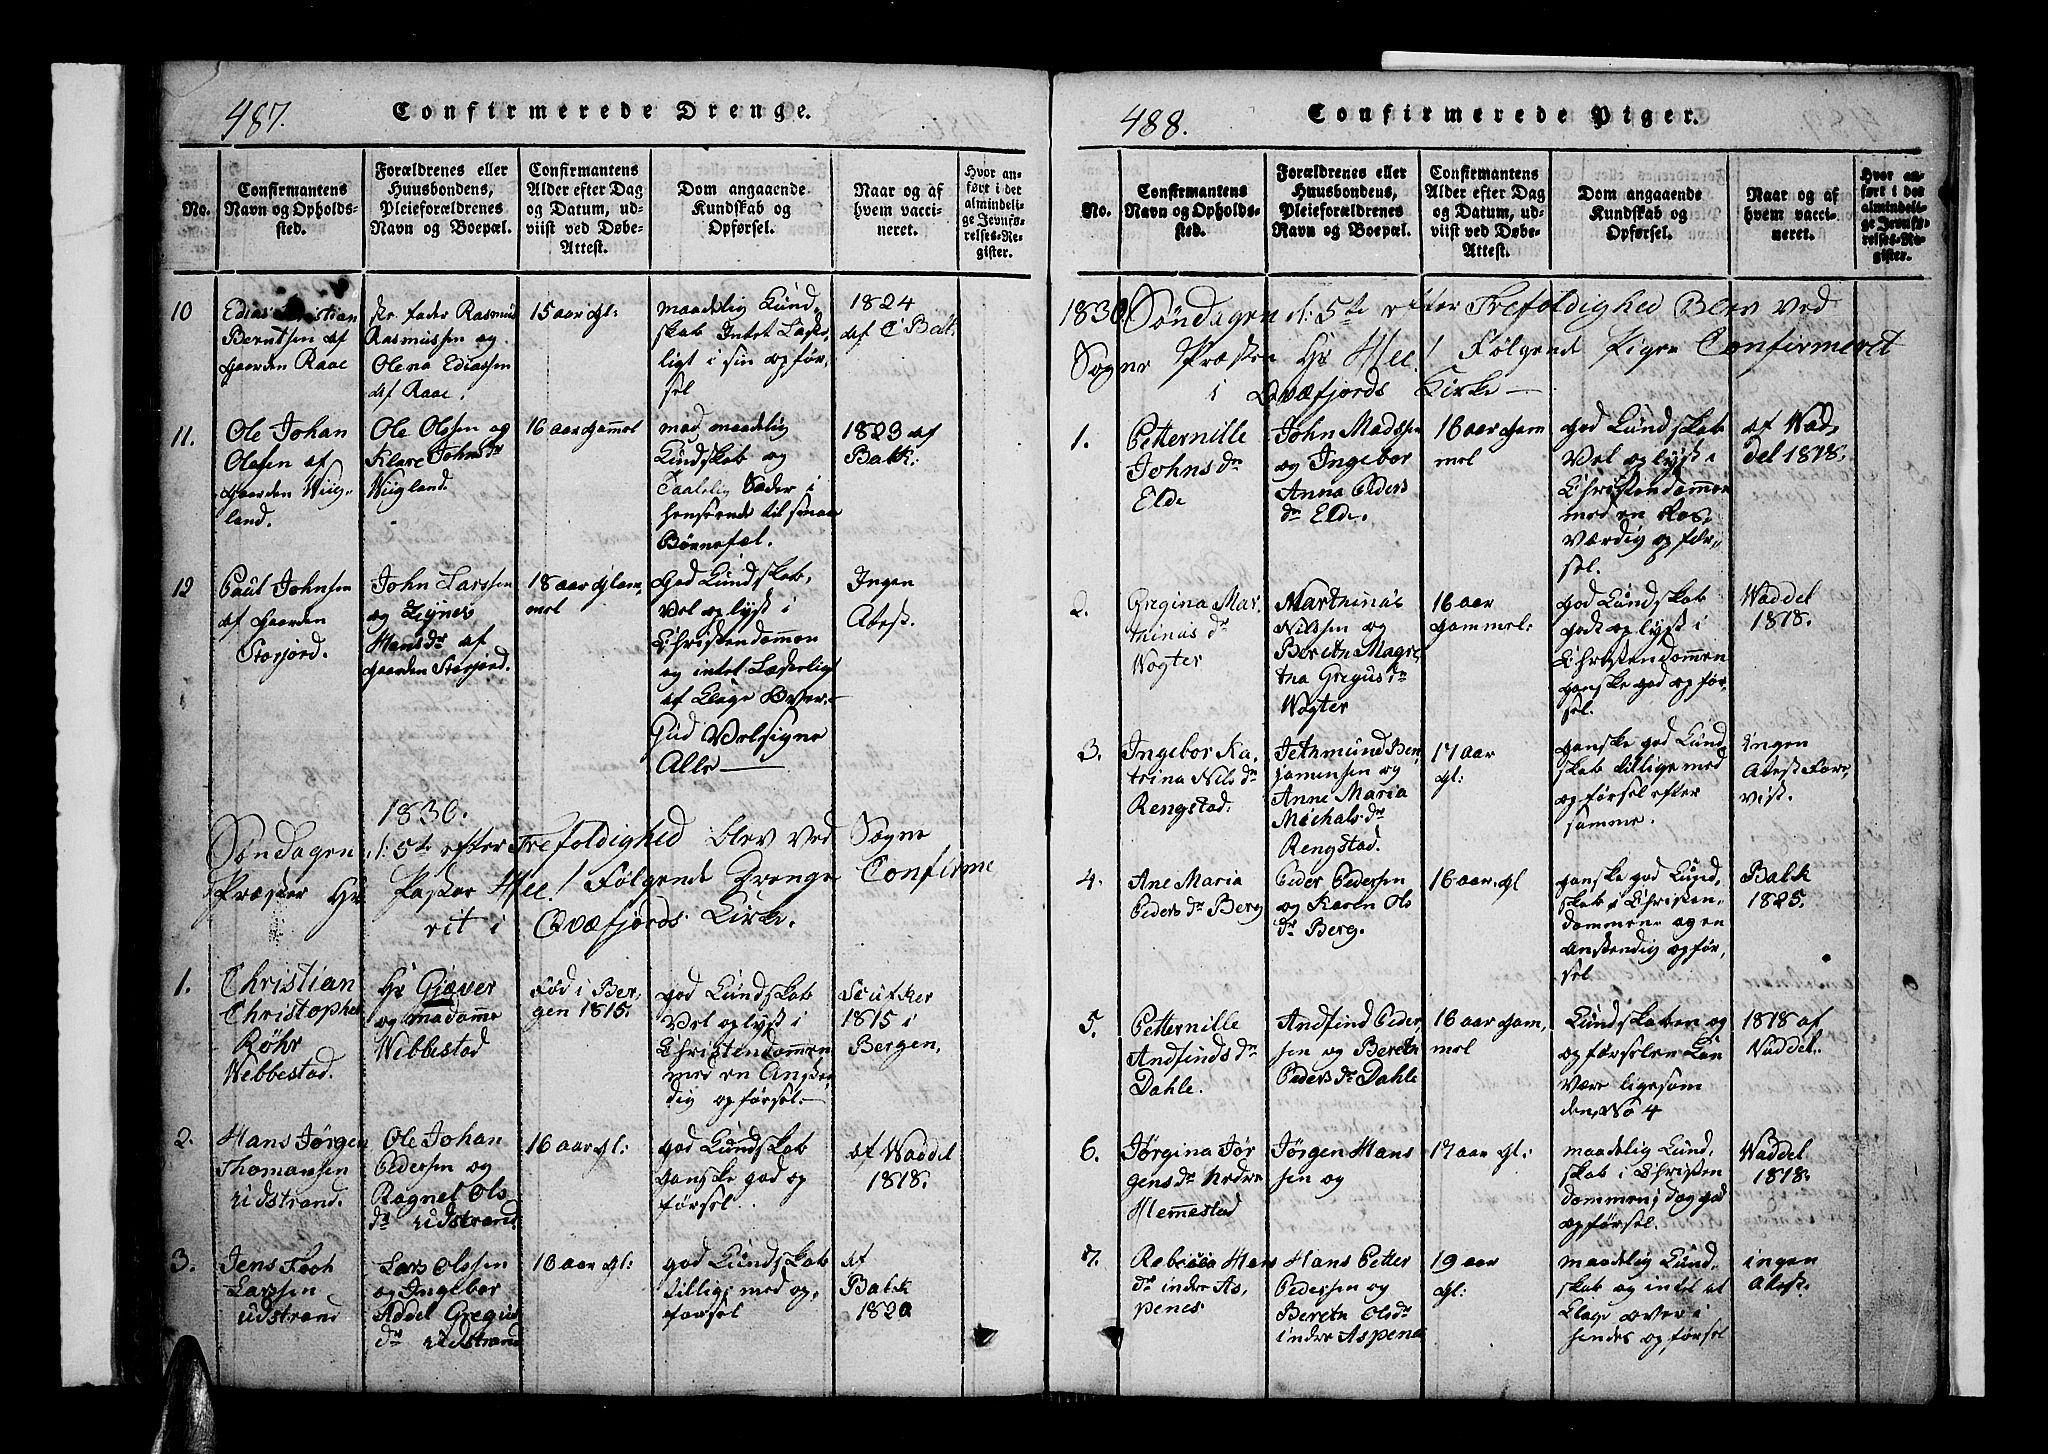 487.
Confirmerede Drenge.
No.
Confirmantens
Navn og Opholds-
sted.
Forældrenes eller
Huusbondens,
Pleieforældrenes
Navn og Boepæl.
Confirmantens
Alder efter Dag
og Datum, ud-
viist ved Døbe-
Attest.
Dom angaaende
Kundskab og
Opførsel.
Naar og af
hvem vacci-
neret.
Hvor an-
ført i det
almindeli-
ge Jevnfø-
relses-Re-
gister.
10
Edias Christian
Berntsen af
Gaarden Raae
fader Rasmus
Rasmussen og
Olena Ediassen
af Raae.
15 aar gl:
maadelig Kund-
skab Intet Laste-
ligt i sin opfør,
sel
1824
af C Balk:
11.
Ole Johan
Olssen af
Gaarden Wiig-
land.
Ole Olssen og
Klare Johns dr
Wiigland.
16 aar Gammel
med maadelig
Kundskab og
Taalelig Sæder i
henseende til smaa
Børnefæl.
1823 af
Balk:
12
Paul Johnsen
af Gaarden
Storjord.
John Larssen
og Zynes
Hansdr af
Gaarden Storjord.
18 aar Gam-
mel
God Kundskab,
Vel oplyst i
Christendommen
og intet Lasterligt
at Klage Over.-
Gud Velsigne
Alle
Ingen
Atest.
1830.
Søndagen d: 5te efter Trefoldighed blev ved Sogne
Præsten Hr Pastor Hee! Følgende Drenge Confirme
ret i Qvæfjords Kirke.
1.
Christian
Christopher
Røhr
Webbestad.
Hr Gjæver
og madame
Webbestad
Fød i Ber,
gen 1815.
god Kundskab
Vel oplyst i
Christendommen
med en Anstæn
dig opførsel.-
1815 i
Bergen,
2.
Hans Jørgen
Thomassen
Udstrand.
Ole Johan
Pedersen og
Ragnel Ols
dr Udstrand
16 aar gl:
god Kundskab
ganske god op
førsel..
af Waddel
1818.
3.
Jens Foch
Larssen
Udstrand
Lars Olssen
og Ingebor
Addel Gregus
dr Udstrand
16 aar gl:
god Kundskab
tillige med op,
førsel
af
Balk
1820
488.
Confirmerede Piger.
No.
Confirmantens
Navn og Opholds-
sted.
Forældrenes eller
Huusbondens,
Pleieforældrenes
Navn og Boepæl.
Confirmantens
Alder efter Dag
og Datum, ud-
viist ved Døbe-
Attest.
Dom angaaende
Kundskab og
Opførsel.
Naar og af
hvem vacci-
neret.
Hvor an-
ført i det
almindeli-
ge Jevnfø-
relses-Re-
gister.
1830. Søndagen d: 5te efter Trefoldighed Blev ved
Sogne Præsten Hr Hee! Følgende Piger Confirmeret
i Qvæfjords Kirke
1.
Petternille
Johns dr
Elde
John Madssen
og Ingebor
Anna Peders
dr Elde.
16 aar Gam
mel
god Kundskab
Vel oplyst i
Christendommen
med en Ros,
Værdig opfør-
sel.
af Wad,
del 1818.
2.
Gregina Mar
tninas dr
Wogter
Martninas
Nilssen og
Beretn Magre
tna Gregus dr
Wogter
16 aar
gammel:
god Kundskab
godt oplyst i
Christendommen
ganske god opfør,
sel.
Waddel
1818.
3.
Ingebor Ka,
trina Nils dr
Rengstad:
Jethmund Ben
jamensen og
Anne Maria
Michals dr
Rengstad.
17 aar
gl:
ganske god Kund
skab tillige med
opførsel efter
samme.
Ingen
Atest Fore,
vist.
4.
Ane Maria
Peders dr Berg
Peder Pedersen
og Karen Ols
dr Berg.
16 aar, gl
ganske god Kund,
skab i Christen,
dommene og en
Anstendig opfør,
sel
Balk
1825.
5.
Petternille
Andfinds dr
Dahle.
Andfind Peder
sen og Beretn
Peders dr Dahle
16 aar Gam,
mel
Kundskaben og
opførselen Kan
Være ligesom
den No 4
1818 af
Vaddel.
6.
Jørgina Jør
gens dr Nedre
Hemmestad
Jørgen Hans
sen og
17 aar gl:
maadelig Kund,
skab i Christen
dommen, dog god
opførsel.
Waddel
1818.
7.
Rebicca Hans
dr indre As,
penes
Hans Petter
Pedersen og
Beretn Olsdr
indre Aspenes
19 aar
gl:
maadelig Kund,
skab og intet at
Klage over i
hendes opførsel
ingen
Atest.